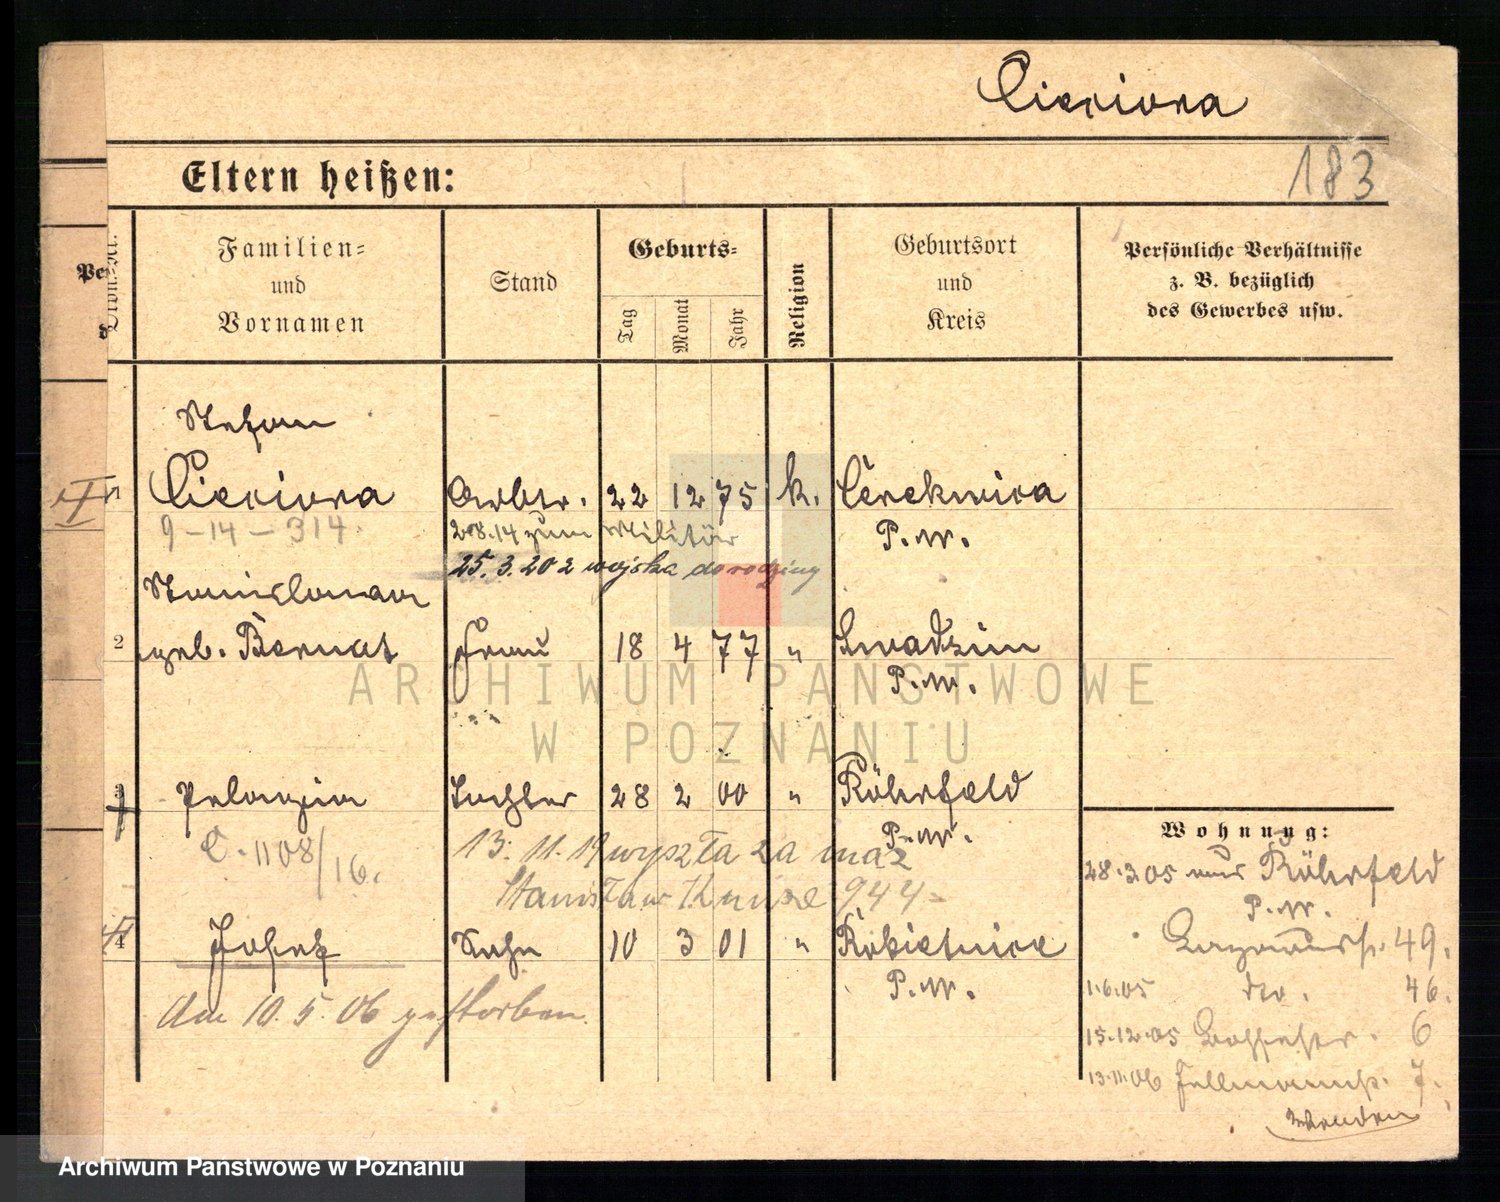 Cieciora
183
Eltern heißen:
Pe
d
Familien=
und
Vornamen
Stand
Geburts=
Tag
Monat
Jahr
Religion
Geburtsort
und
Kreis
Persönliche Verhältnisse
z. B. bezüglich
des Gewerbes usw.
Stefan
1 Cieciora Arbtr. 22 12 75 k. Cerekwica
P.W.
9-14-314.
2.8.14 zum Militär
25.3.20 z wojska do rodziny
Stanislawa
2 geb. Bernat Frau 18 4 77 " Swadzim
P.W.
3 Pelagia Tochter 28 2 00 " Röhrfeld
P.W.
C. 1108/16.
13. 11. 19 wyszła za mąż
Stanisław
4 Josef Sohn 10 3 01 " Rokietnice
P.W.
Am 10.5.06 gestorben.
Wohnung:
28.3.05 aus Röhrfeld
P.W.
49.
1.6.05 dto. 46.
15.12.05 6
13.11.06 7.
wenden
ARCHIWUM PAŃSTWOWE
W POZNANIU
Archiwum Państwowe w Poznaniu